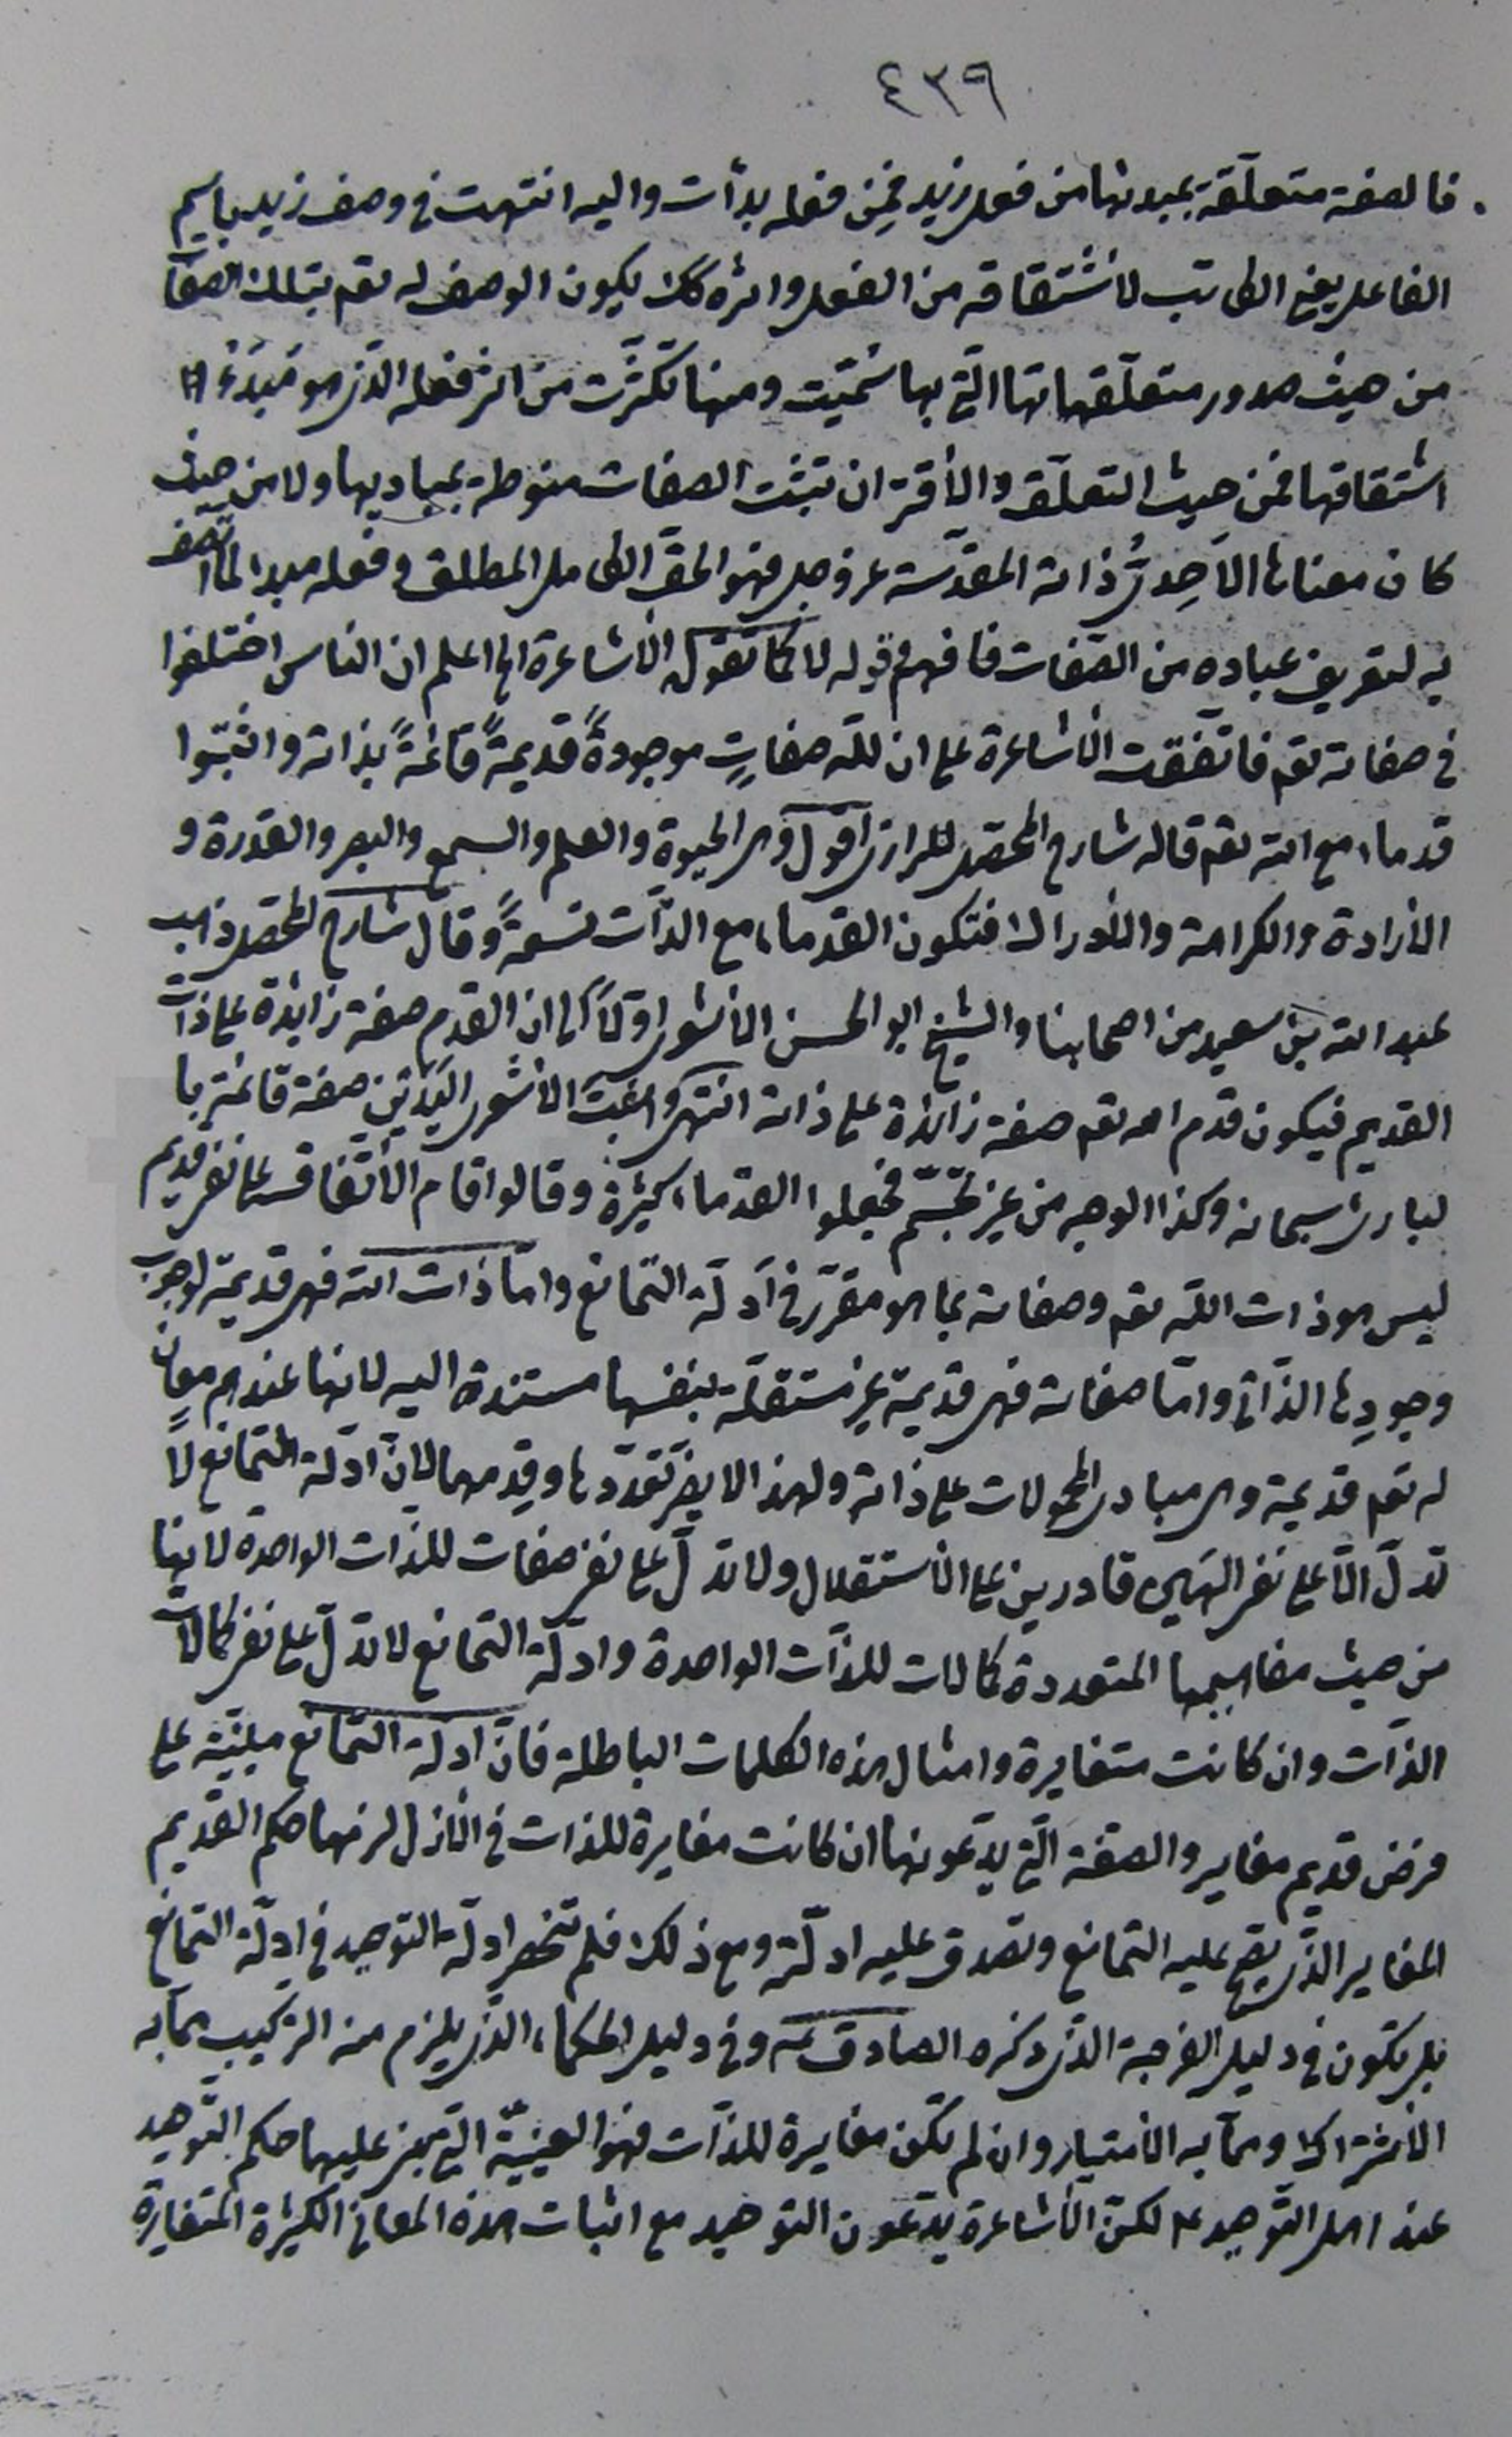 ٤٣٩
فالصفة متعلّقة بمبدئها من فعل زيد فمِن فعله بدأت واليه انتهت في وصف زيد باسم
الفاعل يعني الكاتب لاشتقاقه من الفعل واثره كك يكون الوصف له تعم بتلك الصفا
من حيث صدور متعلّقهاتها الّتي بها سُمّيت ومنها تكثّرت من اثر فعله الّذي هو مَبدَءُ
اشتقاقها فمن حيث التعلّق والأقتران تثبت الصفات منوطة بمباديها ولا من حيث
كان معناها الاَحِديُّ ذاته المقدّسة عز وجل فهو الحق الكامل المطلق وفعله مبدا لما اتّصف
به لتعريف عباده من الصّفات فافهم وقوله لا كما تقول الأشاعرة الخ اعلم ان الناس اختلفوا
في صفاته تعم فاتّفقت الأشاعرة على ان للّه صفاتٍ موجودةً قديمةً قائمةً بذاته واثبتوا
قدماء مع الله تعم قاله شارح المحصّل للرازي اقول وهي الحيوة والعلم والسمع والبصر والقدرة و
الأرادة والكرامة والأدراك فتكون القدماء مع الذّات تسعةً وقال شارح المحصّل ذهب
عبد الله بن سعيد من اصحابنا والشيخ ابو الحسن الأشعري اوّلاً الى ان القدم صفة زايدة على ذات
القديم فيكون قدم الله تعم صفة زائدة على ذاته انتهى واثبت الأشعري اليَدَين صفة قائمة با
لباري سبحانه وكذا الوجه من غير تجسّم فجعلوا القدماء كثيرة وقالوا قام الأتّفاق على نفي قديم
ليس هو ذات اللّه تعم وصفاته بما هو مقرّر في اَدلّة التّمانع وامّا ذات الله فهي قديمة لوجوب
وجودِها الذّاتي وامّا صفاته فهي قديمة غير مستقلّة بنفسها مستندة اليه لانها عندهم معانٍ
له تعم قديمة وهي مبادي المحمولات على ذاته ولهذا لا يضرّ تعدّدها وقدمها لانّ ادلّة التمانع لا
تدلّ الّا على نفي الٰهين قادرين على الأستقلال ولا تدلّ على نفي صفات للذّات الواحدة لانها
من حيث مفاهيمها المتعددة كمالات للذّات الواحدة وادلّة التمانع لا تدلّ على نفي كمالات
الذّات وان كانت متغايرة وامثال هذه الكلمات الباطلة فانّ ادلة التّمانع مبنيّة على
فرض قديم مغاير والصفة الّتي يدّعونها ان كانت مغايرة للذات في الأزل لزمها حكم القديم
المغاير الّذي يقع عليه التمانع وتصدق عليه ادلّته ومع ذلك فلم تنحصر ادلّة التوحيد في ادلّة التمانع
بل يكون في دليل الفرجة الذّي ذكره الصادق عه وفي دليل الحكماء الّذي يلزم منه التركيب ممّا به
الأشتراك وممّا به الأمتياز وان لم تكن مغايرة للذّات فهو العينيّة الّتي يجري عليها حكم التّوحيد
عند اهل التّوحيد عه لكنّ الأشاعرة يدّعون التوحيد مع اثبات هذه المعاني الكثيرة المتغايرة